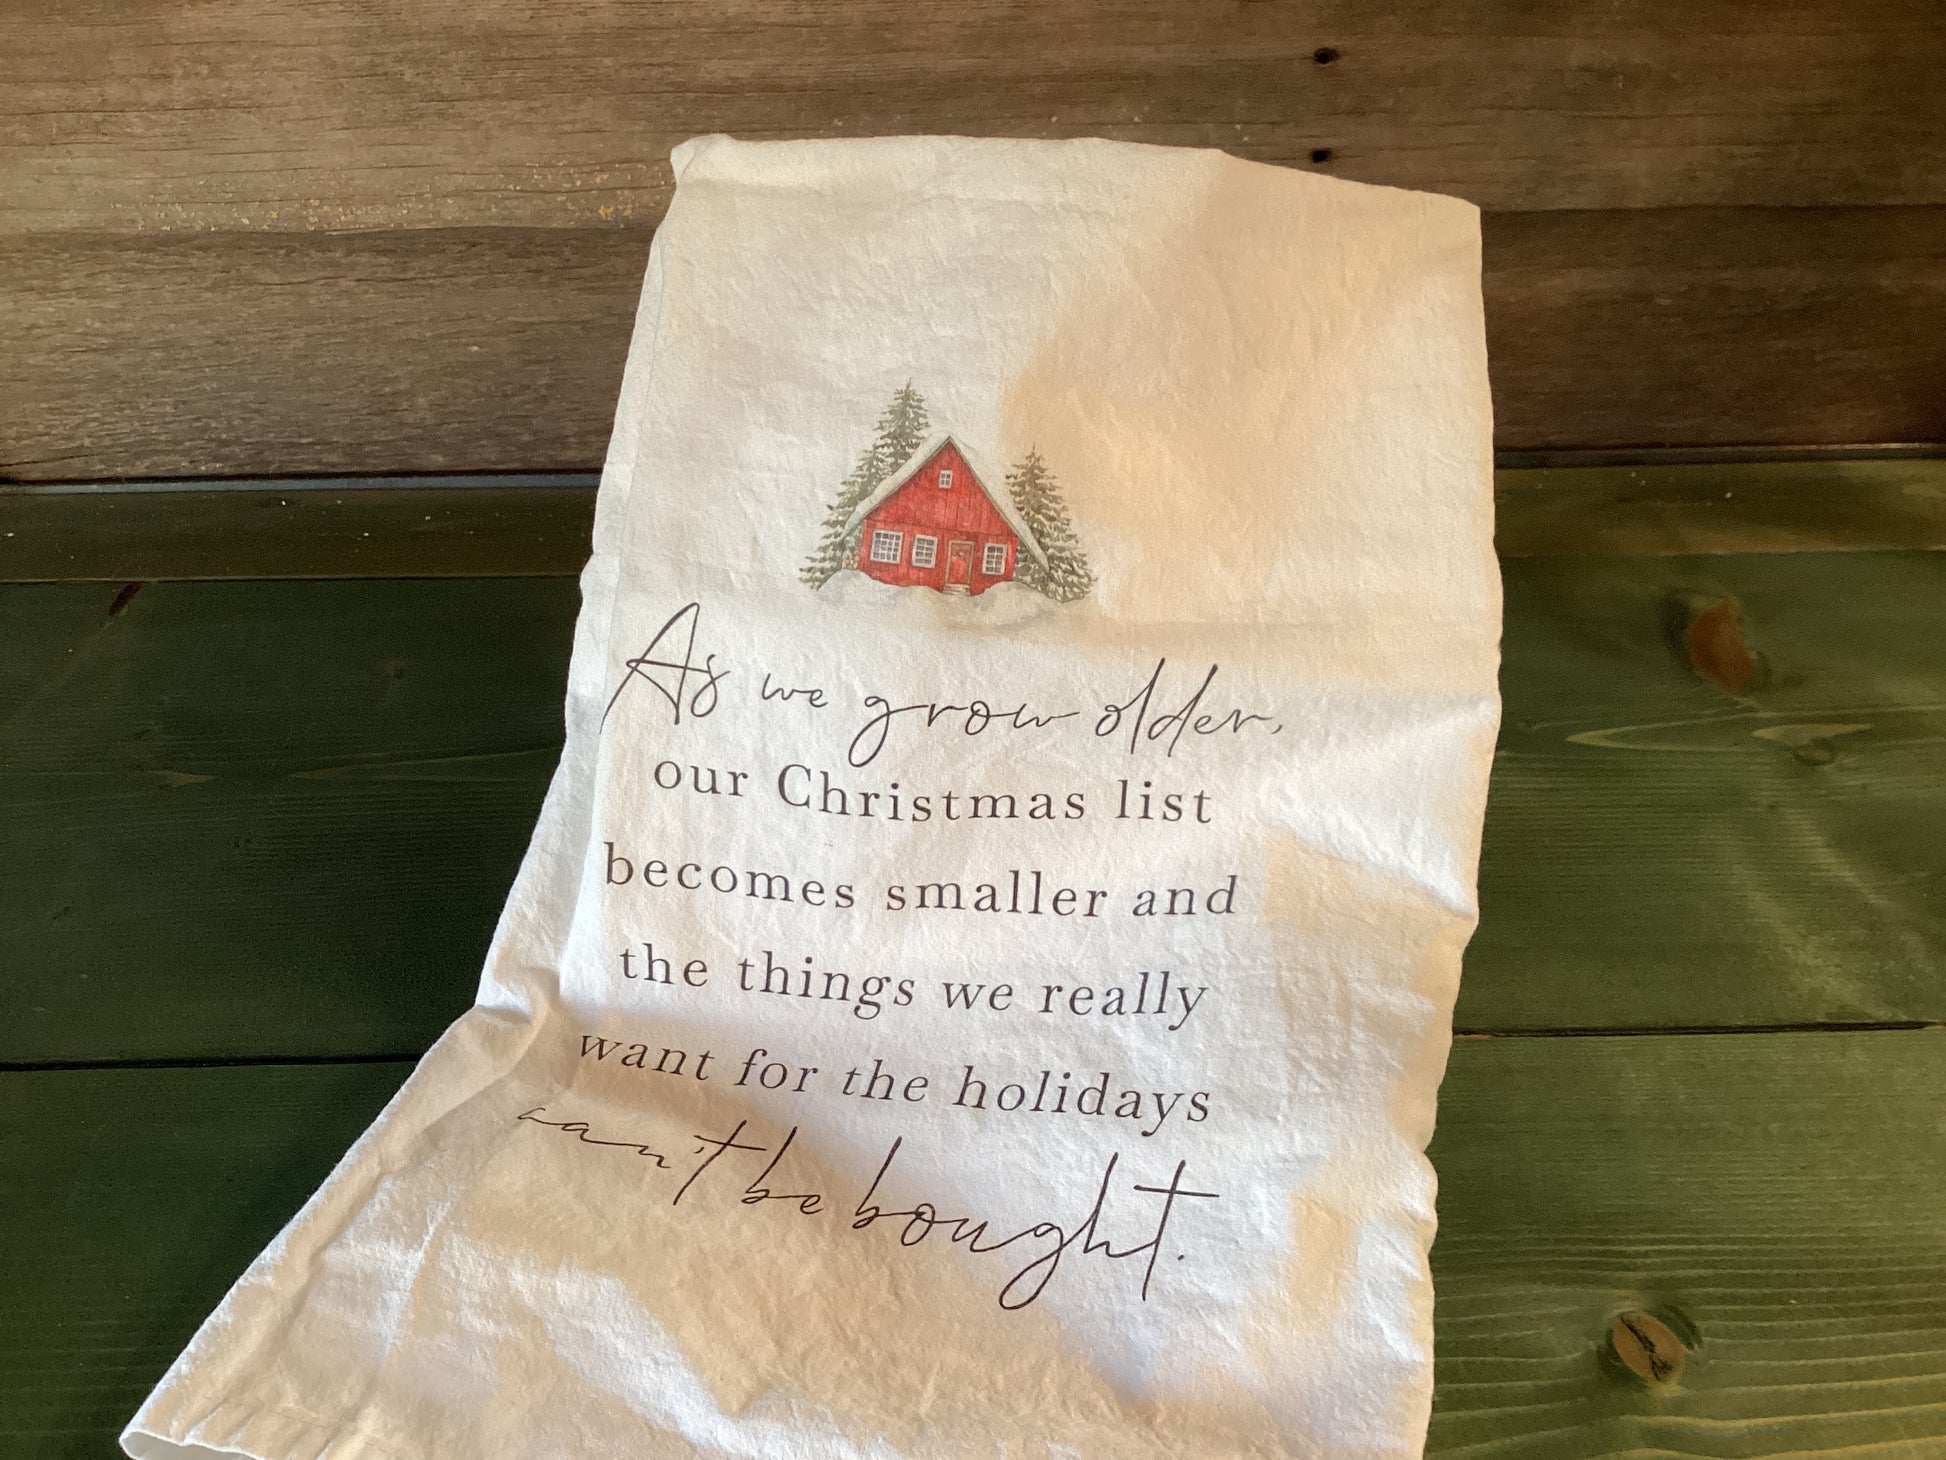 As we grow older,
our Christmas list
becomes smaller and
the things we really
want for the holidays
can't be bought.